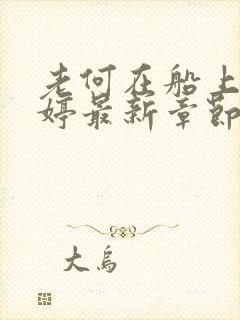 老何在船上
婷最新章节
大乌